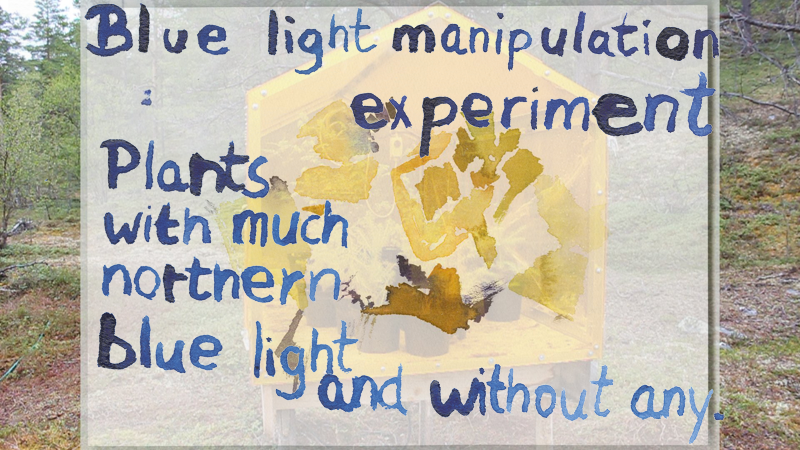 Blue light manipulation
experiment
Plants
with much
nortnern
blue light
and without any.